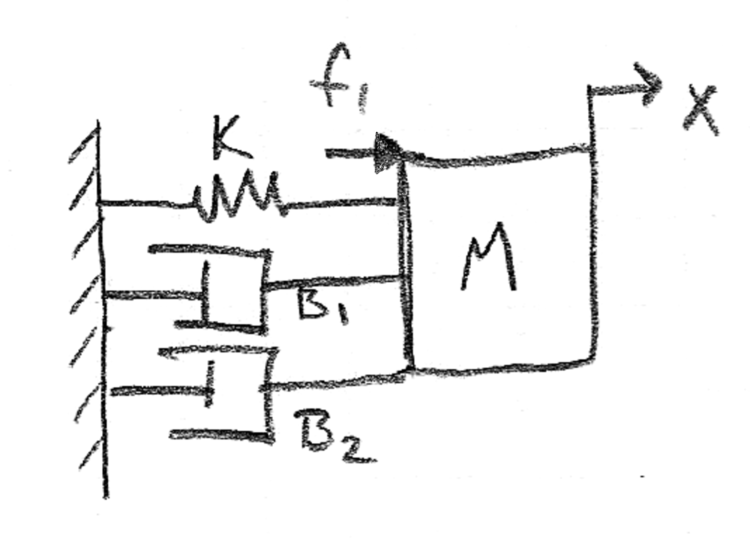 f₁
X
K
M
B₁
B₂